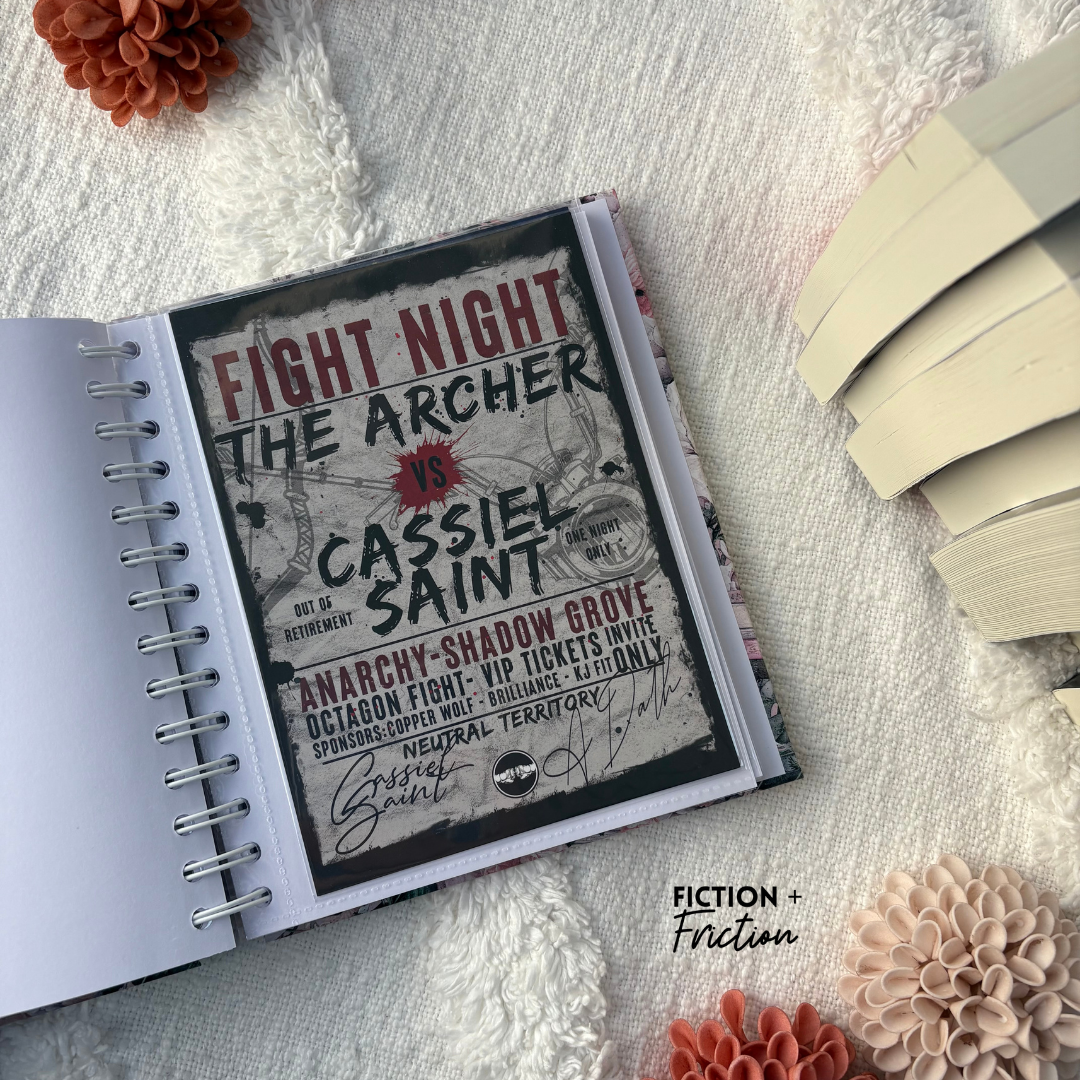 FIGHT NIGHT
THE ARCHER
VS
CASSIEL
SAINT
ONE NIGHT
ONLY
OUT OF
RETIREMENT
ANARCHY-SHADOW GROVE
OCTAGON FIGHT- VIP TICKETS INVITE
SPONSORS:COPPER WOLF - BRILLIANCE - KJ FIT ONLY
NEUTRAL TERRITORY
Cassiel
Saint
FICTION +
Friction